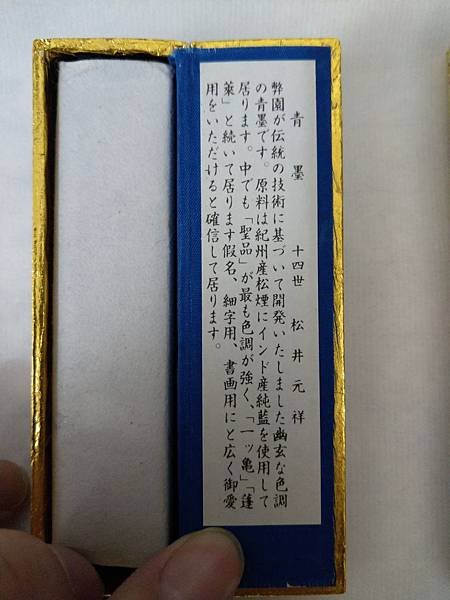 青墨 十四世 松井元祥
弊園が伝統の技術に基づいて開発いたしました幽玄な色調
の青墨です。原料は紀州産松煙にインド産純藍を使用して
居ります。中でも「聖品」が最も色調が強く、「一ッ亀」「蓬
萊」と続いて居ります假名、細字用、書画用にと広く御愛
用をいただけると確信して居ります。